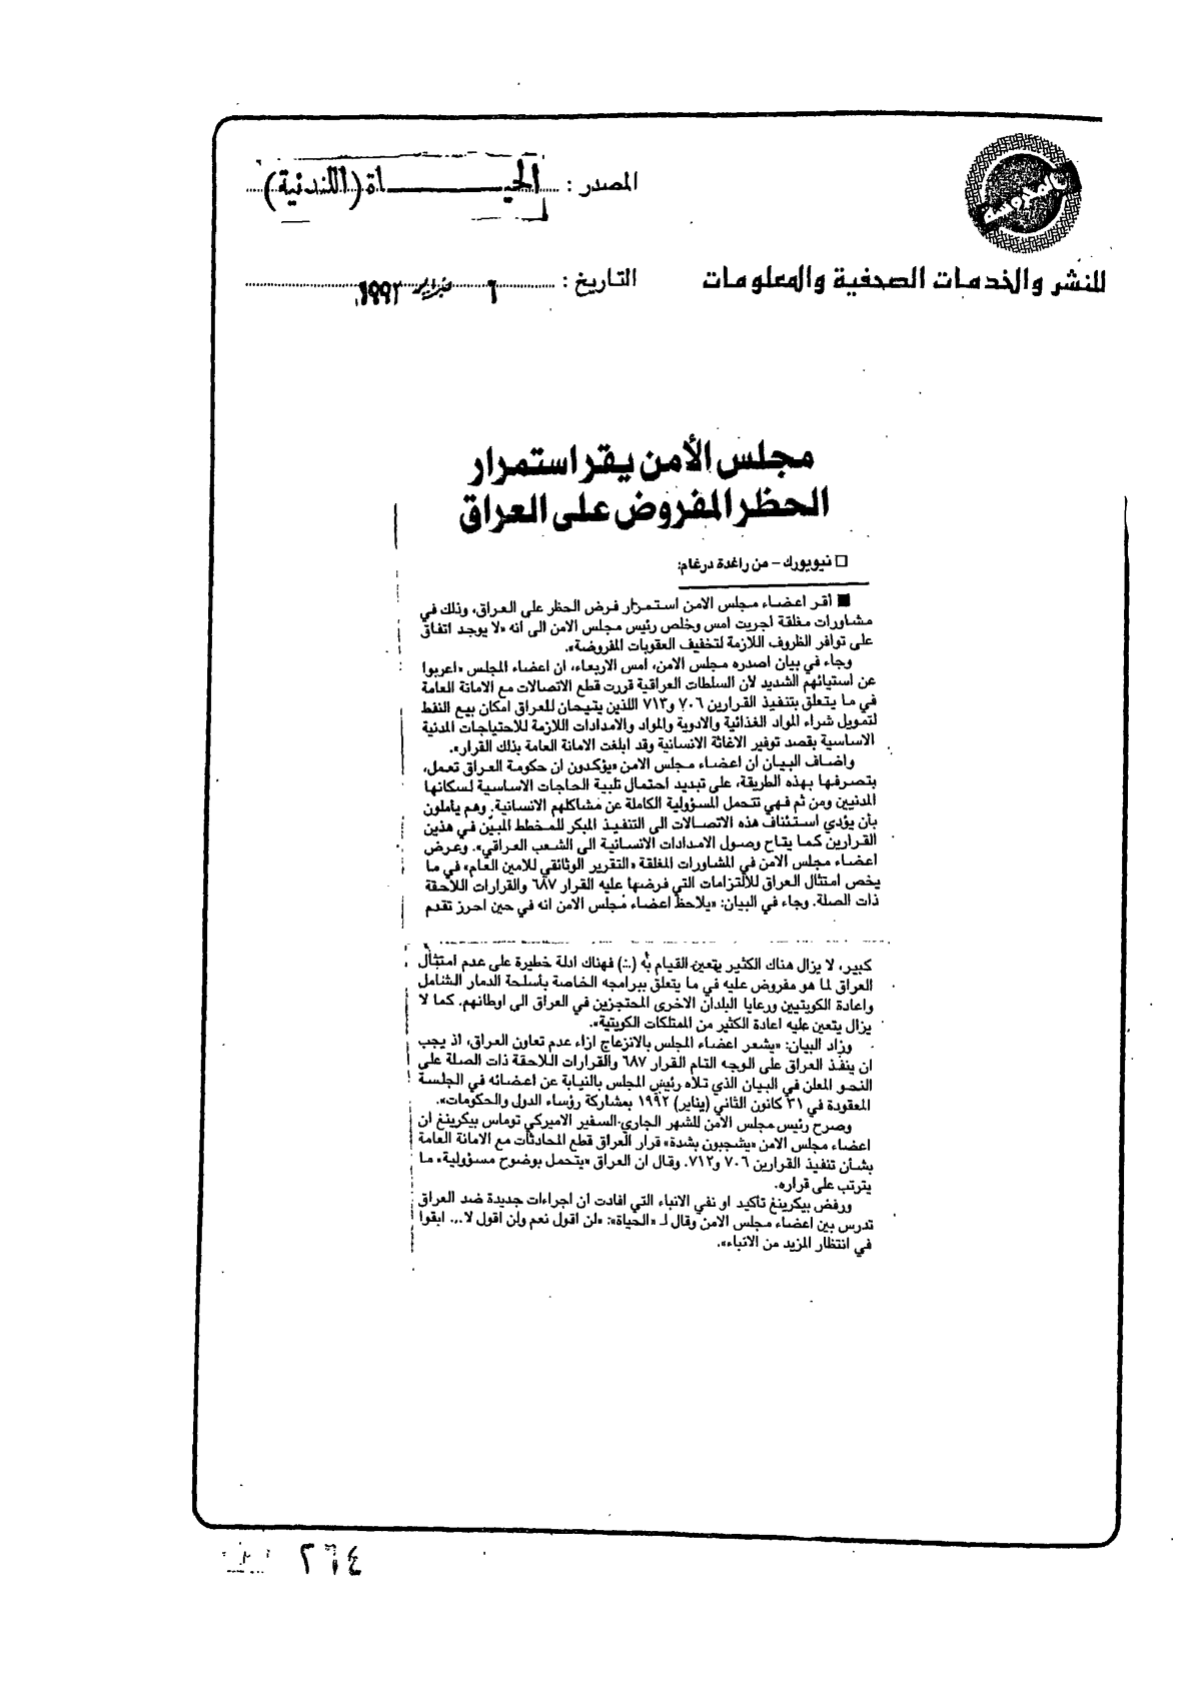 المصدر : الحيـــــــاة (اللندنية)
للنشر والخدمات الصحفية والمعلومات
التاريخ : ٦ فبراير ١٩٩٢
مجلس الأمن يقر استمرار
الحظر المفروض على العراق
□ نيويورك – من راغدة درغام:
■ اقر اعضاء مجلس الامن استمرار فرض الحظر على العراق، وذلك في
مشاورات مغلقة اجريت امس وخلص رئيس مجلس الامن الى انه «لا يوجد اتفاق
على توافر الظروف اللازمة لتخفيف العقوبات المفروضة».
وجاء في بيان اصدره مجلس الامن، امس الاربعاء، ان اعضاء المجلس «اعربوا
عن استيائهم الشديد لأن السلطات العراقية قررت قطع الاتصالات مع الامانة العامة
في ما يتعلق بتنفيذ القرارين ٧٠٦ و٧١٣ اللذين يتيحان للعراق امكان بيع النفط
لتمويل شراء المواد الغذائية والادوية والمواد والامدادات اللازمة للاحتياجات المدنية
الاساسية بقصد توفير الاغاثة الانسانية وقد ابلغت الامانة العامة بذلك القرار».
واضاف البيان ان اعضاء مجلس الامن «يؤكدون ان حكومة العراق تعمل،
بتصرفها بهذه الطريقة، على تبديد احتمال تلبية الحاجات الاساسية لسكانها
المدنيين ومن ثم فهي تتحمل المسؤولية الكاملة عن مشاكلهم الانسانية. وهم يأملون
بأن يؤدي استئناف هذه الاتصالات الى التنفيذ المبكر للمخطط المبيّن في هذين
القرارين كما يتاح وصول الامدادات الانسانية الى الشعب العراقي». وعرض
اعضاء مجلس الامن في المشاورات المغلقة «التقرير الوثائقي للامين العام» في ما
يخص امتثال العراق للالتزامات التي فرضها عليه القرار ٦٨٧ والقرارات اللاحقة
ذات الصلة. وجاء في البيان: «يلاحظ اعضاء مجلس الامن انه في حين احرز تقدم
كبير، لا يزال هناك الكثير يتعين القيام به (...) فهناك ادلة خطيرة على عدم امتثال
العراق لما هو مفروض عليه في ما يتعلق ببرامجه الخاصة بأسلحة الدمار الشامل
واعادة الكويتيين ورعايا البلدان الاخرى المحتجزين في العراق الى اوطانهم. كما لا
يزال يتعين عليه اعادة الكثير من الممتلكات الكويتية».
وزاد البيان: «يشعر اعضاء المجلس بالانزعاج ازاء عدم تعاون العراق، اذ يجب
ان ينفذ العراق على الوجه التام القرار ٦٨٧ والقرارات اللاحقة ذات الصلة على
النحو المعلن في البيان الذي تلاه رئيس المجلس بالنيابة عن اعضائه في الجلسة
المعقودة في ٣١ كانون الثاني (يناير) ١٩٩٢ بمشاركة رؤساء الدول والحكومات».
وصرح رئيس مجلس الامن للشهر الجاري السفير الاميركي توماس بيكرينغ ان
اعضاء مجلس الامن «يشجبون بشدة» قرار العراق قطع المحادثات مع الامانة العامة
بشأن تنفيذ القرارين ٧٠٦ و٧١٢. وقال ان العراق «يتحمل بوضوح مسؤولية» ما
يترتب على قراره.
ورفض بيكرينغ تأكيد او نفي الانباء التي افادت ان اجراءات جديدة ضد العراق
تدرس بين اعضاء مجلس الامن وقال لـ «الحياة»: «لن اقول نعم ولن اقول لا... ابقوا
في انتظار المزيد من الانباء».
٢٦٤